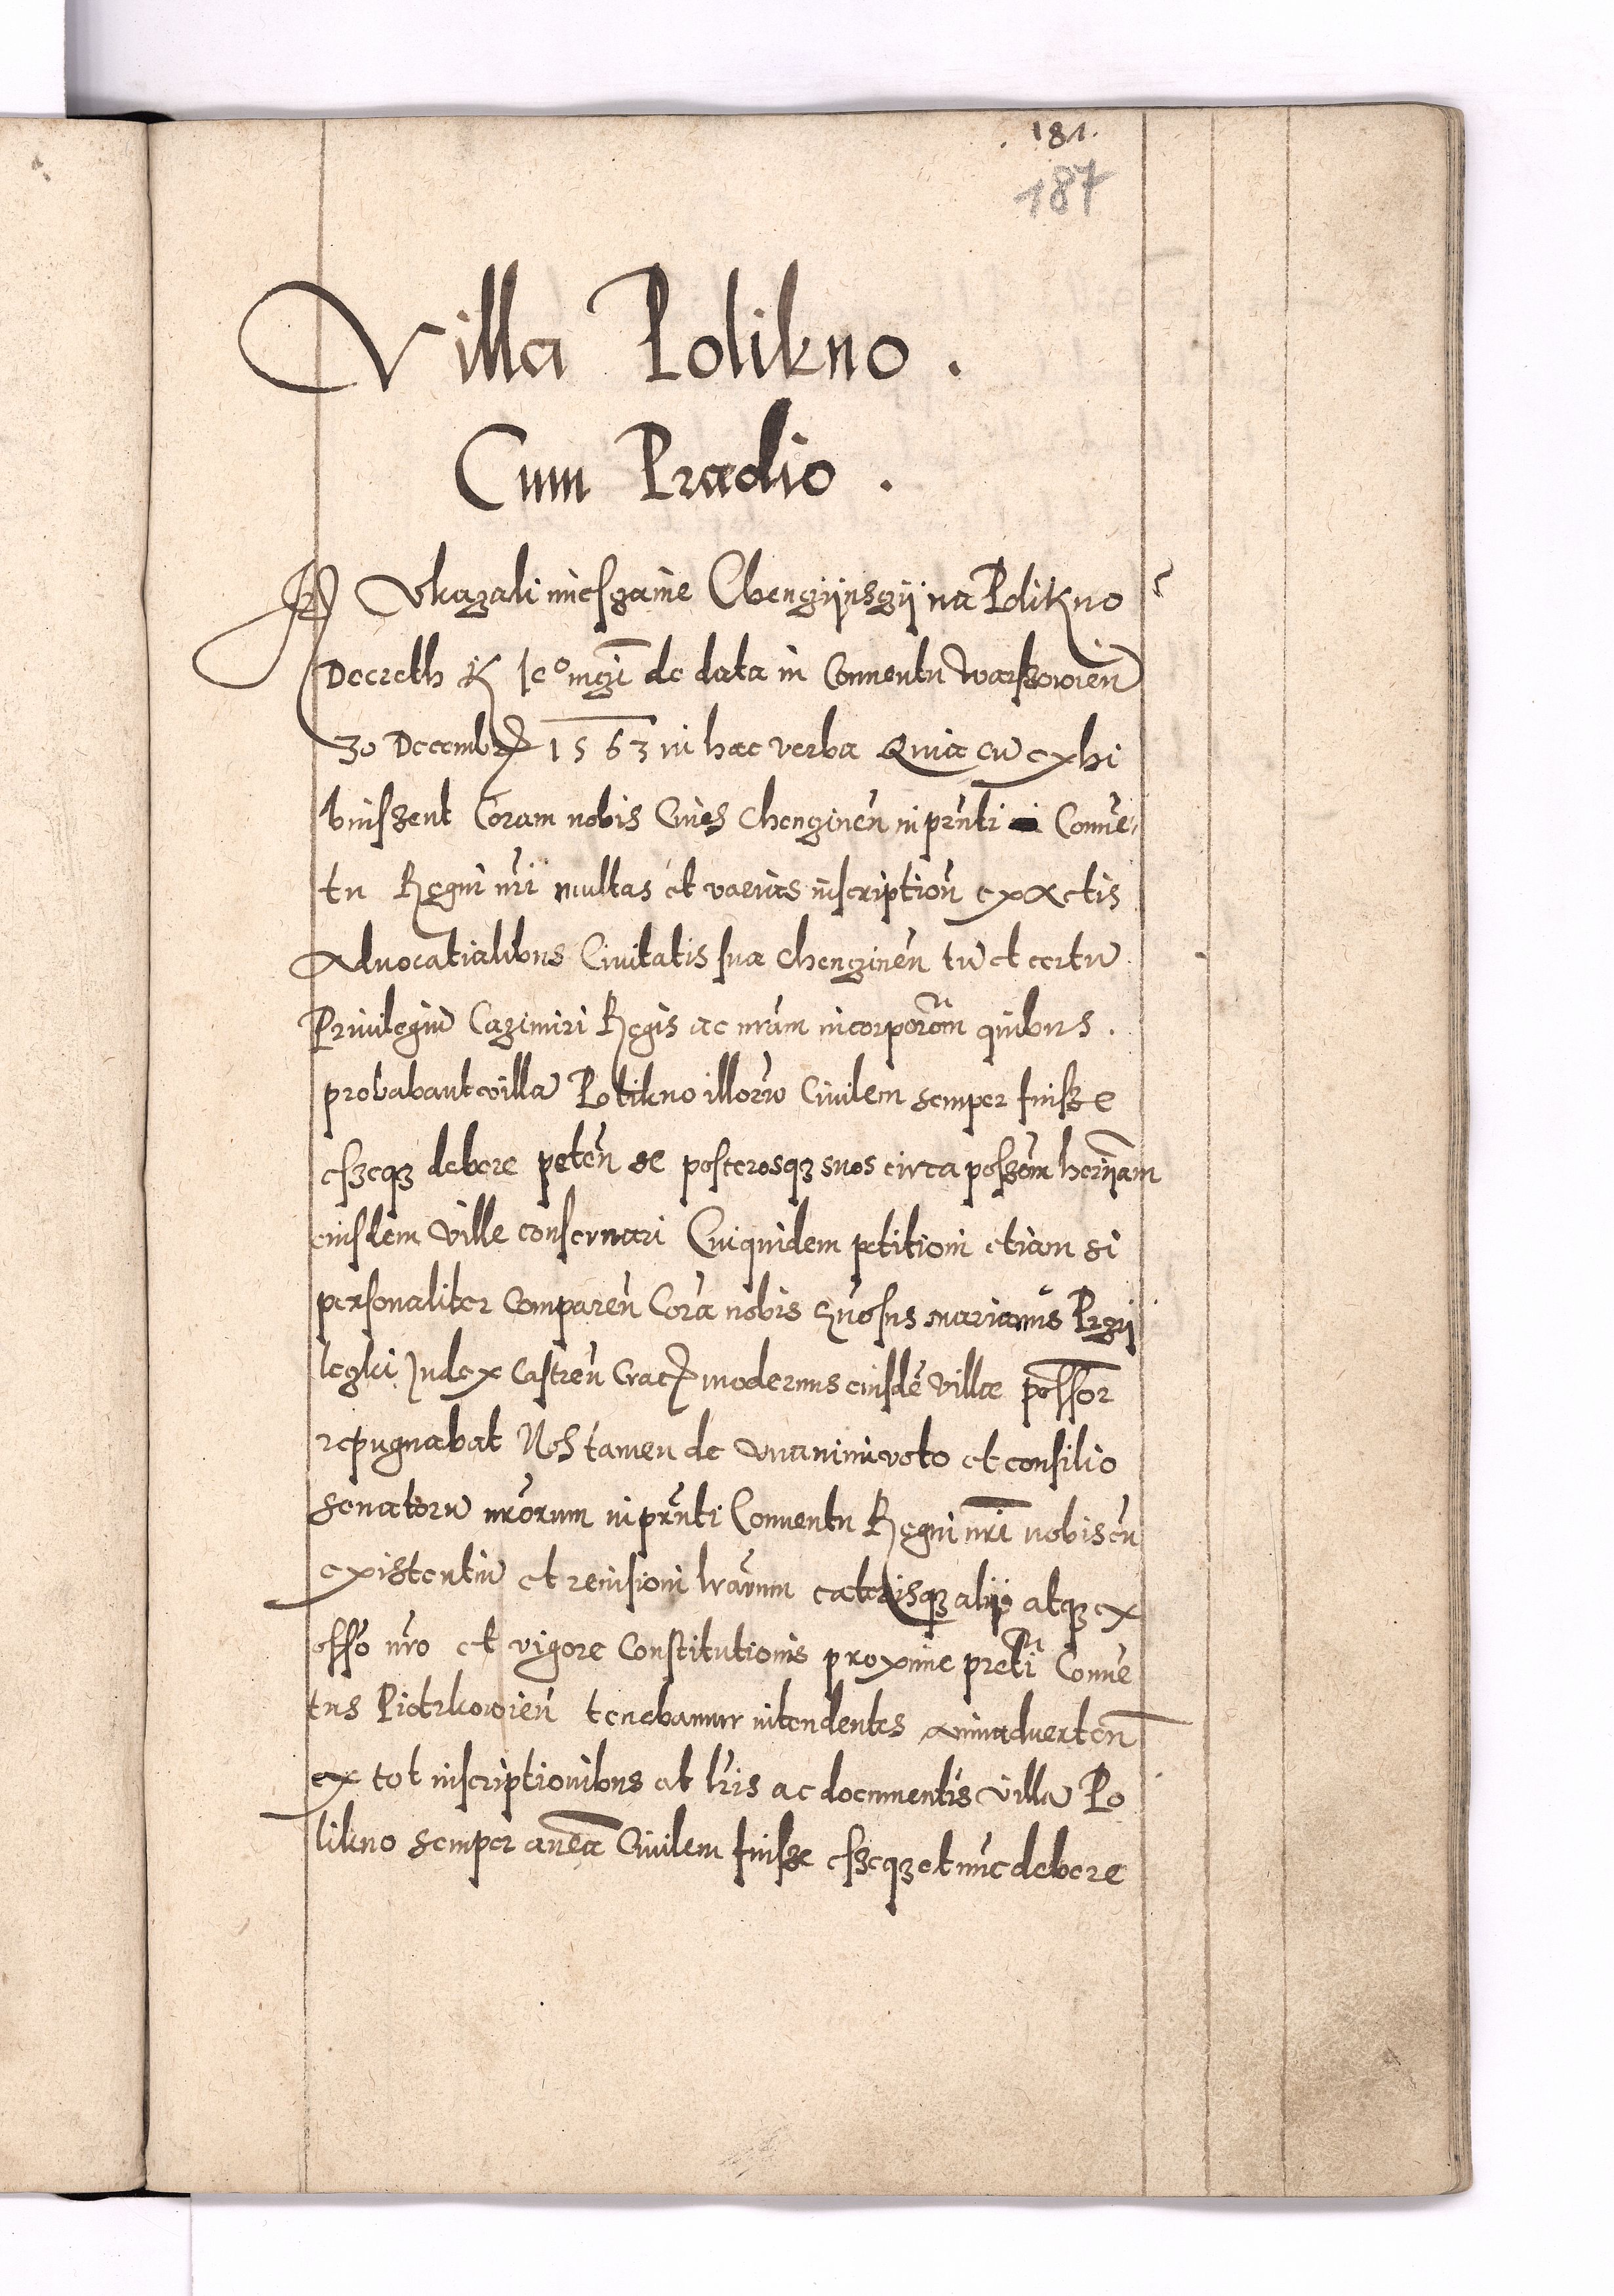 181.
187
Villa Polikno.
Cum Prædio.
Ukazali miesczanie Chenczijnsczij na Polikno
Decreth K Je° mczi de data in Conuentu warszowień
30 Decembr 1563 in hæc verba Quia cu exhi
buissent Coram nobis Ciues Chencineń in prnti Conue-
tu Regni nri multas et varias inscriptioń ex actis
Aduocatialibus Ciuitatis suæ Chencineń tu et certu
Priuilegiu Cazimiri Regis ac nram incorporom quibus.
probabant villa Polikno illoru Ciuilem semper fuisse
esseqz debere peteń se posterosqz suos circa possom
eiusdem Ville conseruari Cuiquidem petitioni etiam si
personaliter Compareń Cora nobis Marianus Przij
leczki Judex Castreń Crac modernus eiusde Villæ possor
repugnabat Nos tamen de vnanimi voto et consilio
senatoru nrorum in prnti Conuentu Regni nri nobiscu
existentiu et reuisioni lrarum cæterisqz alijs atqz ex
offo nro et vigore Constitutionis proxime preti Conue
tus Piotrkowień tenebamur intendentes animaduerteń
ex tot inscriptionibus et lris ac documentis villa Po
likno semper antea Ciuilem fuisse esseqz et nuc debere